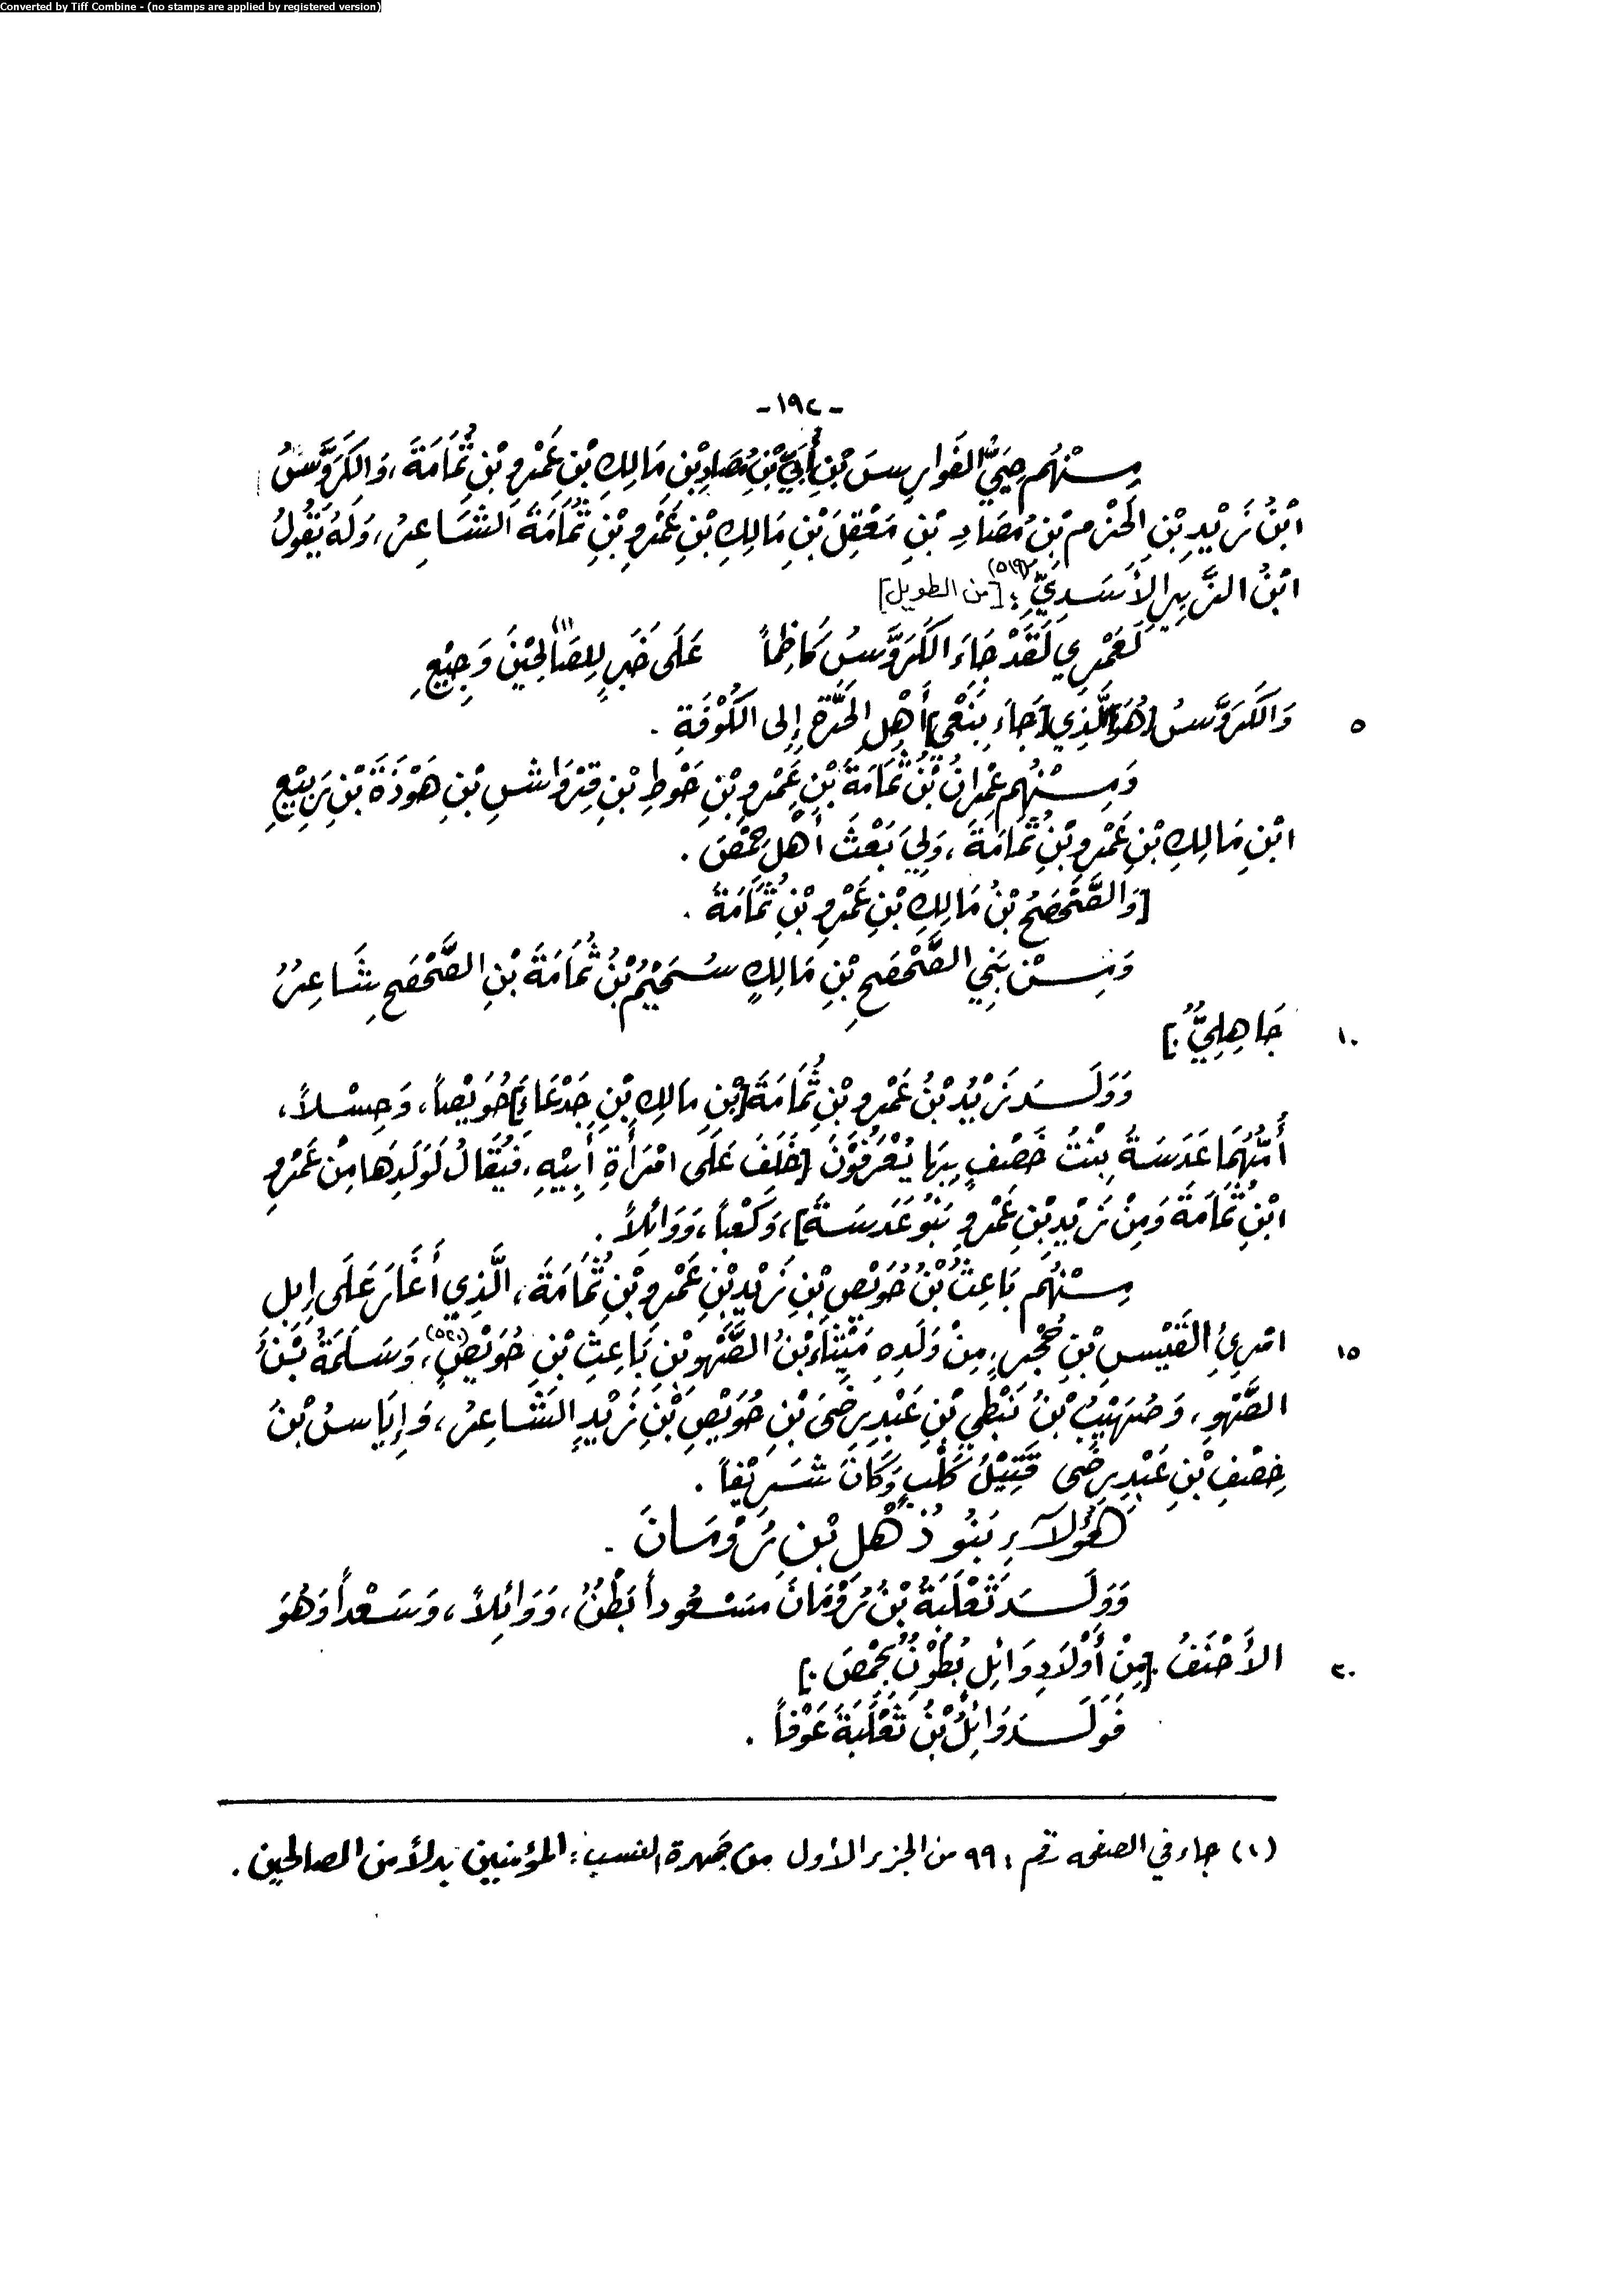 Converted by Tiff Combine - (no stamps are applied by registered version)
-١٩٢-
مِنْهُم حِيَيُّ الفَوارِسِ بْنِ أُبَيِّ بْنِ مَصَادِ بْنِ مَالِكِ بْنِ عَمْرِو بْنِ ثُمَامَةَ، وَالكَرَوَّسُ
ابْنُ زَيْدِ بْنِ الحَزْمِ بْنِ مَصَادِ بْنِ مَعْقِلِ بْنِ مَالِكِ بْنِ عَمْرِو بْنِ ثُمَامَةَ الشَّاعِرُ، وَلَهُ يَقُولُ
ابْنُ الزَّبِيرِ الأَسَدِيِّ (٥١٩): [من الطويل]
لَعَمْرِي لَقَدْ جَاءَ الكَرَوَّسُ كَاظِماً عَلَى خَبَرٍ لِلصَالِحِيْنَ (١) وَجِيْعِ
٥ وَالكَرَوَّسُ [هُوَ] الَّذِي [جَاءَ بِنَعْي] أَهْلِ الحَرَّةِ إِلى الكُوْفَةِ .
وَمِنْهُم عِمْرَانُ بْنُ ثُمَامَةَ بْنِ عَمْرِو بْنِ حَوْطِ بْنِ قِرْوَاشِ بْنِ هَوْذَةَ بْنِ رَبِيْعِ
ابْنِ مَالِكِ بْنِ عَمْرِو بْنِ ثُمَامَةَ، وَلِيَ بَعْثَ أَهْلِ حِمْصَ .
[وَالصَّحْصَحُ بْنُ مَالِكِ بْنِ عَمْرِو بْنِ ثُمَامَةَ .
وَمِنْ بَنِي الصَّحْصَحِ بْنِ مَالِكٍ سُحَيْمُ بْنُ ثُمَامَةَ بْنِ الصَّحْصَحِ شَاعِرٌ
١٠ جَاهِلِيٌّ .]
وَوَلَدَ زَيْدُ بْنُ عَمْرِو بْنِ ثُمَامَةَ [بْنِ مَالِكِ بْنِ جَدْعَاءَ] حُوَيْصاً، وَحِسْلاً،
أُمُّهُمَا عَدَسَةُ بِنْتُ خَصْفٍ بِهَا يُعْرَفُوْنَ [خَلَفَ عَلَى امْرَأَةِ أَبِيْهِ، فَيُقَالُ لِوَلَدِهَا مِنْ عَمْرِو
ابْنِ ثُمَامَةَ وَمِنْ زَيْدِ بْنِ عَمْرٍو بَنُو عَدَسَةَ]، وَكَعْباً، وَوَائِلاً .
مِنْهُم بَاعِثُ بْنُ حُوَيْصِ بْنِ زَيْدِ بْنِ عَمْرِو بْنِ ثُمَامَةَ، الَّذِي أَغَارَ عَلَى إِبِلِ
١٥ امْرِئِ القَيْسِ بْنِ حُجْرٍ، مِنْ وَلَدِهِ مَيْثَاءُ بْنُ الصَّهْوِ بْنِ بَاعِثِ بْنِ حُوَيْصٍ (٥٢٠)، وَسَلَمَةُ بْنُ
الصَّهْوِ، وَصُهَيْبُ بْنُ نَبْطِي بْنِ عَبْدِ رِضَى بْنِ حُوَيْصِ بْنِ زَيْدٍ الشَّاعِرُ، وَإِيَاسُ بْنُ
خِصْفِ بْنِ عَبْدِ رِضَى قَتِيْلُ كَلْبٍ وَكَانَ شَرِيْفاً .
هَؤُلَاءِ بَنُو ذُهْلِ بْنِ رُوْمَانَ .
وَوَلَدَ ثَعْلَبَةُ بْنُ رُوْمَانَ مَسْعُوداً بَطْنٌ، وَوَائِلاً، وَسَعْداً وَهُوَ
٢٠ الأَحْنَفُ . [مِنْ أَوْلَادِ وَائِلِ بُطُوْنٌ بِحِمْصَ .]
فَوَلَدَ وَائِلُ بْنُ ثَعْلَبَةَ عَوْفاً .
(١) جاء في الصفحه رقم : ٩٩ من الجزء الأول من جمهرة النسب : المؤمنين بدلاً من الصالحين .